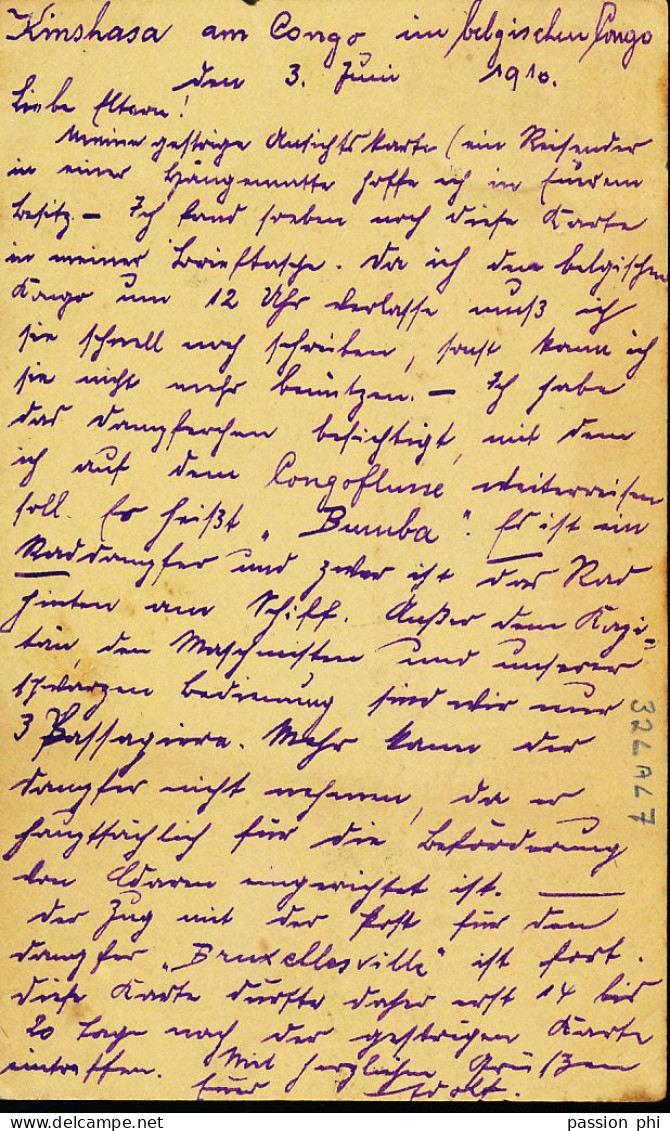 Kinshasa am Congo im belgischen Congo
den 3. Juni 1910.
Liebe Eltern!
Meine gestrige Ansichtskarte (ein Reisender
in einer Hängematte hoffe ich in Eurem
Besitz. – Ich fand soeben noch diese Karte
in meiner Brieftasche. Da ich den belgischen
Kongo um 12 Uhr verlasse muß ich
sie schnell noch schreiben, sonst kann ich
sie nicht mehr benützen. – Ich habe
das Dampferchen besichtigt, mit dem
ich auf dem Congoflusse weiterreisen
soll. Es heißt „Bumba". Es ist ein
Raddampfer und zwar ist das Rad
hinten am Schiff. Außer dem Kapi=
tän, den Maschinisten und unserer
schwarzen Bedienung sind wir nur
3 Passagiere. Mehr kann der
Dampfer nicht nehmen, da er
hauptsächlich für die Beförderung
von Waren eingerichtet ist. —
Der Zug mit der Post für den
Dampfer „Bruxellesville" ist fort.
Diese Karte dürfte daher erst 14 bis
20 Tage nach der gestrigen Karte
eintreffen. Mit herzlichen Grüßen
Euer Adolf.
passion phi